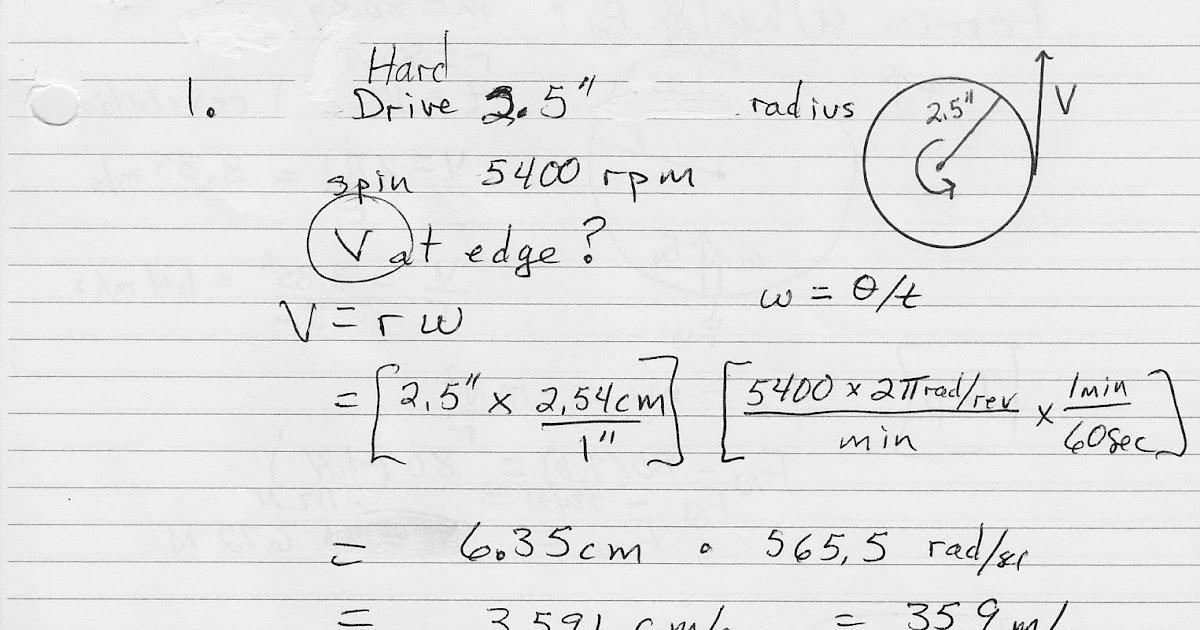 1. Hard
Drive 2.5" radius
2.5"
V
spin 5400 rpm
V at edge?
ω = θ/t
V = r ω
= [2.5" x 2.54cm/1"] [5400 x 2π rad/rev / min x 1min/60sec]
= 6.35cm • 565.5 rad/sec
= 3591 cm/ = 359 m/